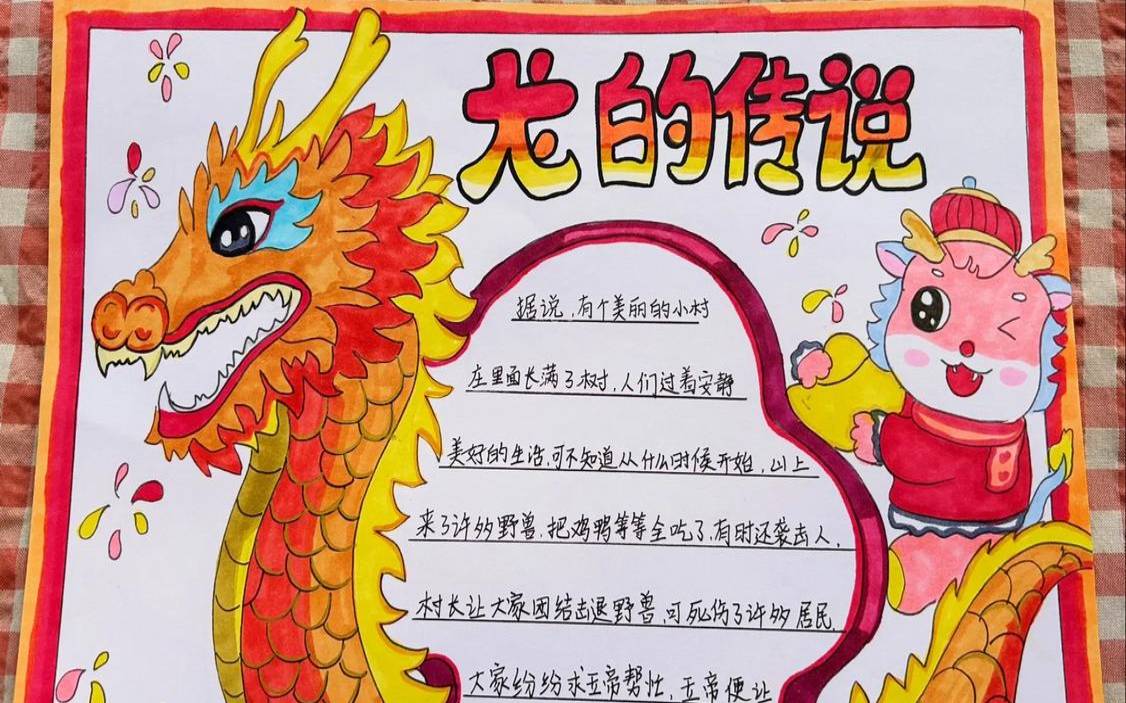 龙的传说
据说,有个美丽的小村
庄里面长满了树,人们过着安静
美好的生活,可不知道从什么时候开始,山上
来了许多野兽,把鸡鸭等等全吃了,有时还袭击人,
村长让大家团结击退野兽,可死伤了许多居民,
大家纷纷求玉帝帮忙,玉帝便让